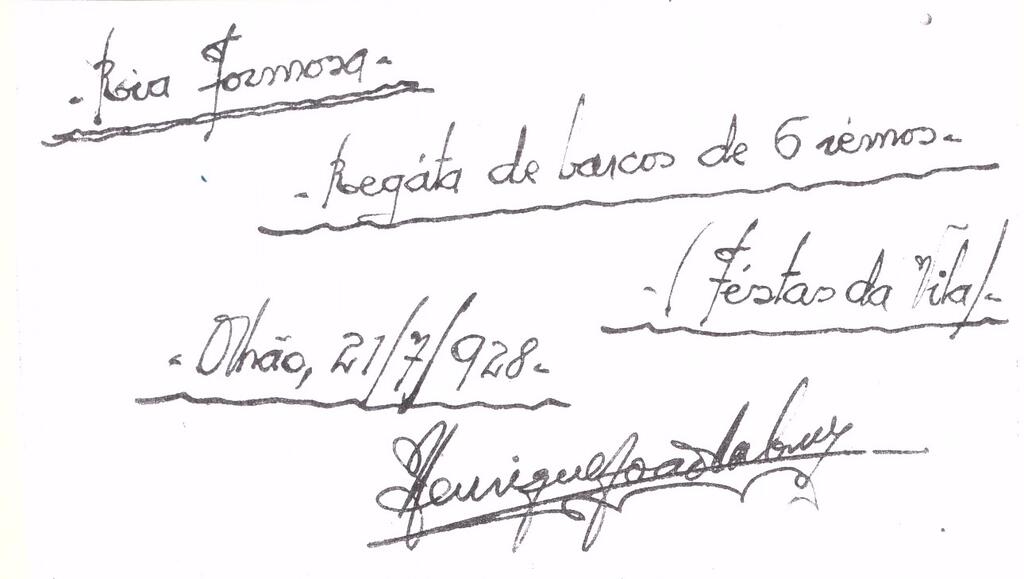 - Ria Formosa -
- Regáta de barcos de 6 rémos -
- (Féstas da Vila) -
- Olhão, 21/7/928 -
Henrique João da Luz